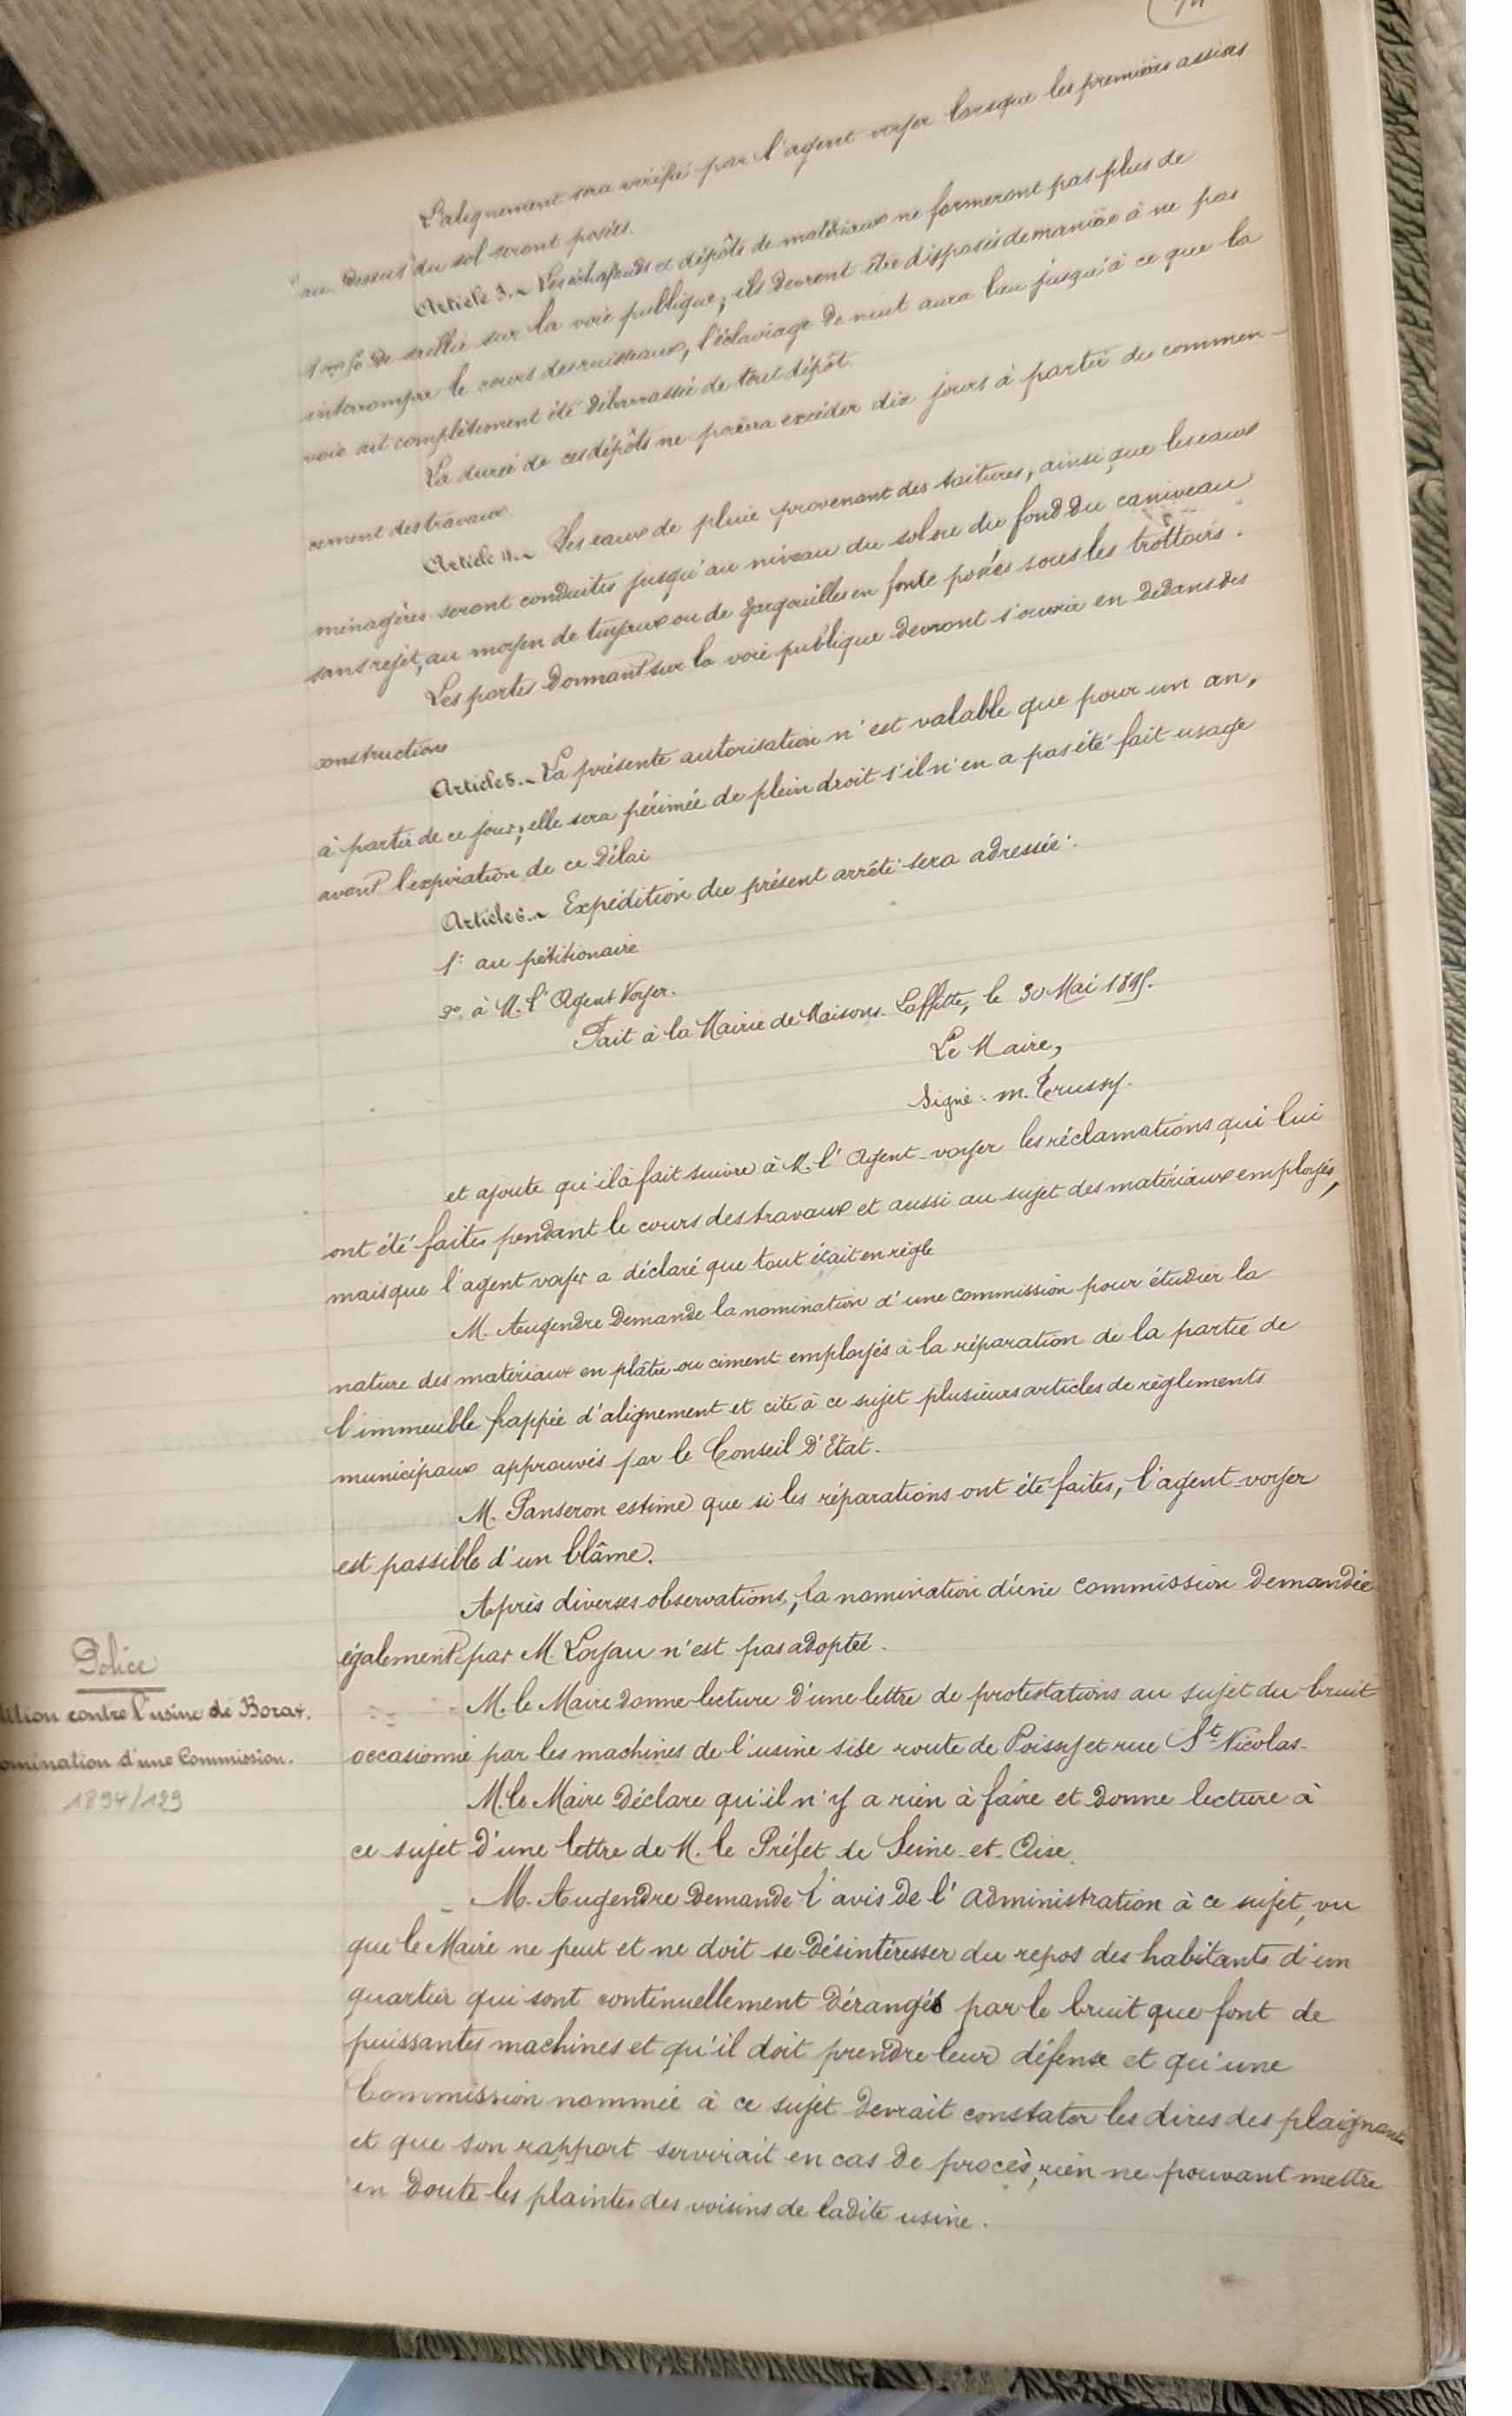 L'alignement sera vérifié par l'agent voyer lorsque les premières assises
au dessus du sol seront posées.
Article 3.~ Les échafauds et dépôts de matériaux ne formeront pas plus de
de saillie sur la voie publique; ils devront être disposés de manière à ne pas
interrompre le cours des ruisseaux, l'éclairage de nuit aura lieu jusqu'à ce que la
voie ait complètement été débarrassée de tout dépôt.
La durée de ces dépôts ne pourra excéder dix jours à partir du commen-
cement des travaux.
Article 4.~ Les eaux de pluie provenant des toitures, ainsi que les eaux
ménagères seront conduites jusqu'au niveau du sol ou du fond du caniveau
sans rejet, au moyen de tuyaux ou de gargouilles en fonte posées sous les trottoirs.
Les portes donnant sur la voie publique devront s'ouvrir en dedans des
constructions
Article 5.~ La présente autorisation n'est valable que pour un an,
à partir de ce jour; elle sera périmée de plein droit s'il n'en a pas été fait usage
avant l'expiration de ce délai
Article 6.~ Expédition du présent arrêté sera adressée:
1° au pétitionaire
2° à M. l'Agent Voyer.
Fait à la Mairie de Maisons-Laffitte, le 30 Mai 1895.
Le Maire,
Signé: m. Trussy.
et ajoute qu'il a fait suivre à M. l'Agent-voyer les réclamations qui lui
ont été faites pendant le cours des travaux et aussi au sujet des matériaux employés,
mais que l'agent voyer a déclaré que tout était en règle
M. Augendre demande la nomination d'une commission pour étudier la
nature des matériaux en plâtre ou ciment employés à la réparation de la partie de
l'immeuble frappée d'alignement et cite à ce sujet plusieurs articles de règlements
municipaux approuvés par le Conseil d'Etat.
M. Panseron estime que si les réparations ont été faites, l'agent-voyer
est passible d'un blâme.
Après diverses observations, la nomination d'une commission demandée
également par M. Loyau n'est pas adoptée.
Police
ition contre l'usine de Borax.
omination d'une Commission.
1894/129
M. le Maire donne lecture d'une lettre de protestations au sujet du bruit
occasionné par les machines de l'usine sise route de Poissy et rue St Nicolas.
M. le Maire déclare qu'il n'y a rien à faire et donne lecture à
ce sujet d'une lettre de M. le Préfet de Seine-et-Oise.
M. Augendre demande l'avis de l'administration à ce sujet, vu
que le Maire ne peut et ne doit se désintéresser du repos des habitants d'un
quartier qui sont continuellement dérangés par le bruit que font de
puissantes machines et qu'il doit prendre leur défense et qu'une
Commission nommée à ce sujet devrait constater les dires des plaignants
et que son rapport servirait en cas de procès, rien ne pouvant mettre
en doute les plaintes des voisins de ladite usine.